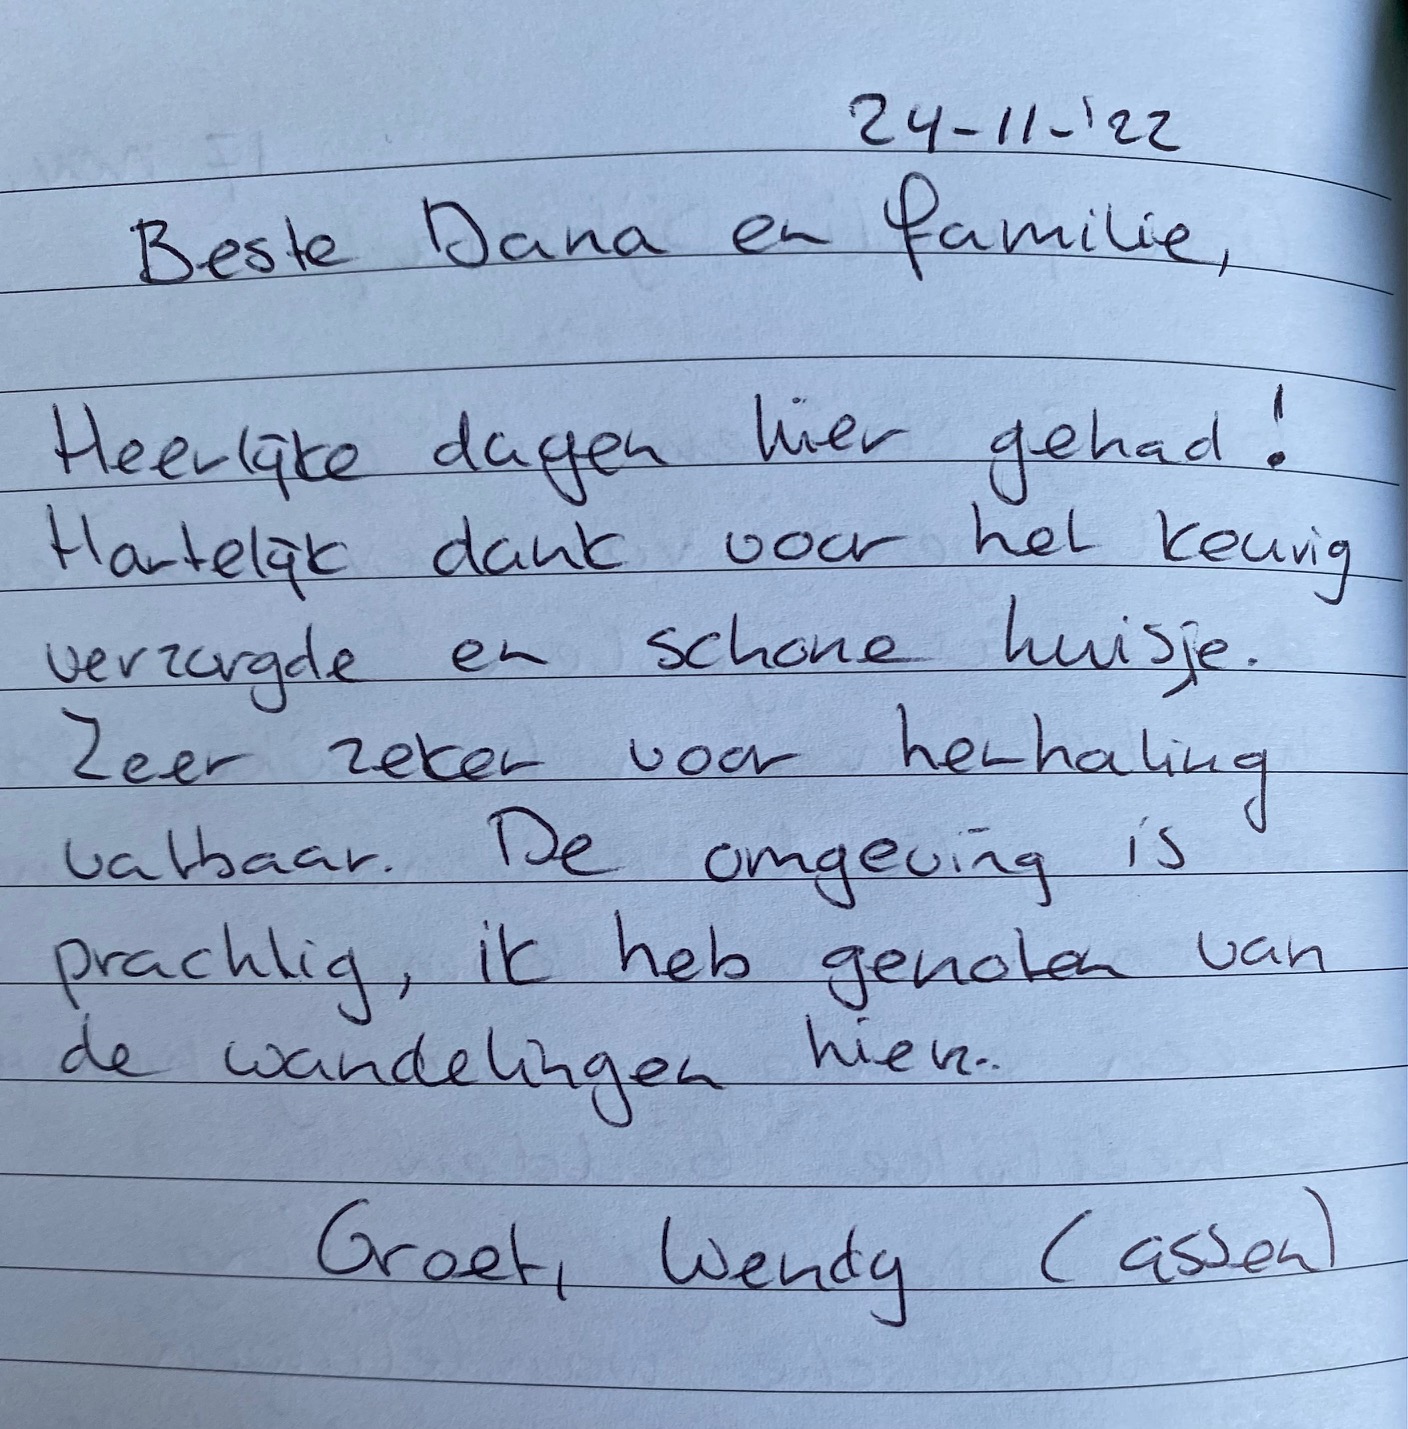 24-11-'22
Beste Dana en familie,
Heerlijke dagen hier gehad!
Hartelijk dank voor het keurig
verzorgde en schone huisje.
Zeer zeker voor herhaling
vatbaar. De omgeving is
prachtig, ik heb genoten van
de wandelingen hier.
Groet, Wendy (assen)